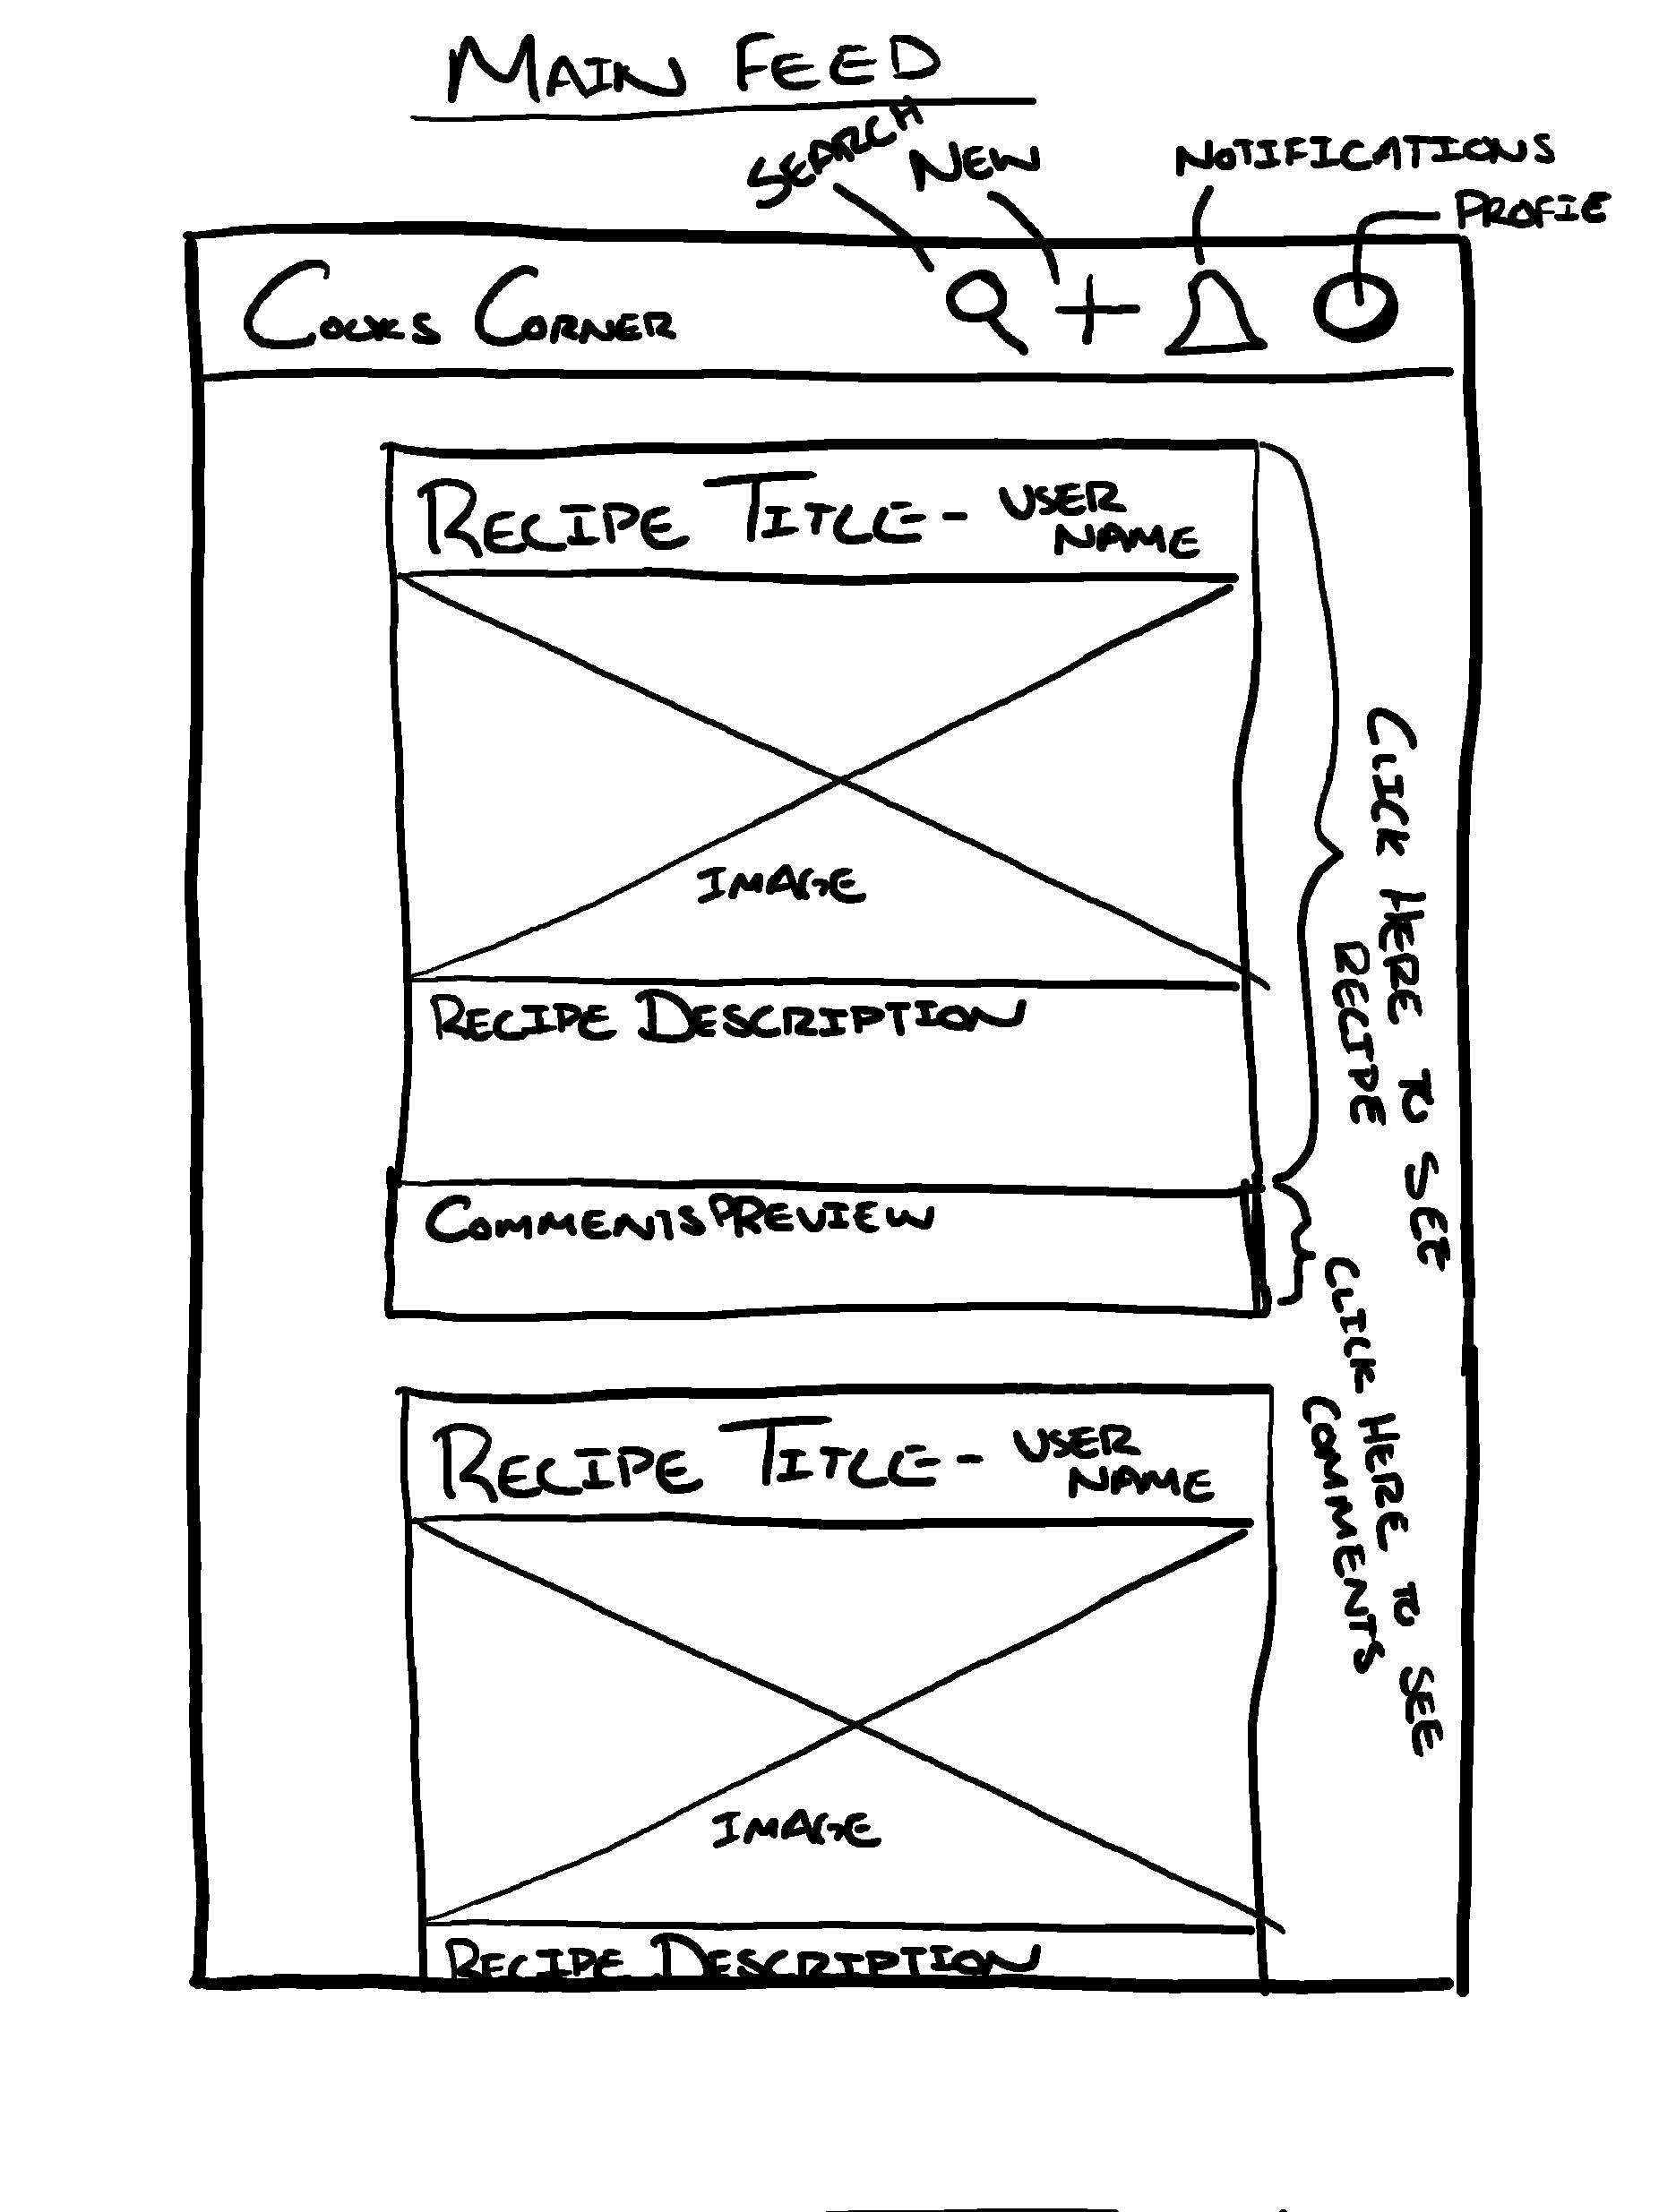 MAIN FEED
SEARCH
NEW
NOTIFICATIONS
PROFIE
COOKS CORNER
RECIPE TITLE - USER
NAME
IMAGE
RECIPE DESCRIPTION
COMMENTS PREVIEW
CLICK HERE TO SEE
RECIPE
CLICK HERE TO SEE
COMMENTS
RECIPE TITLE - USER
NAME
IMAGE
RECIPE DESCRIPTION